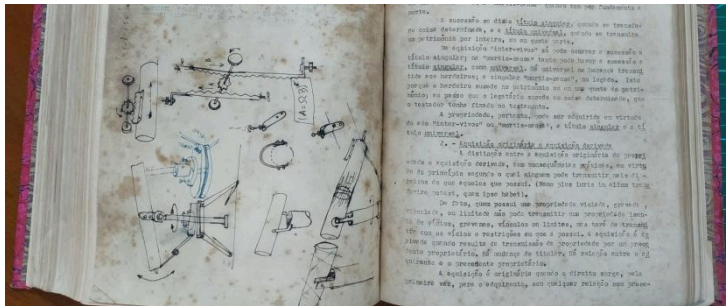 (A=Ω3)
porte.
A sucessão se dizia título singular, quando se transfere
coisa determinada, e a título universal, quando se transmite
um patrimônio por inteiro, ou em quota parte.
Na aquisição "inter-vivos" só pode ocorrer a sucessão a
título singular; na "mortis-causa" tanto pode haver a sucessão a
título singular, como universal. Há universal na herança transmi
tida aos herdeiros; e singular "mortis-causa", no legado. Isto
porque o herdeiro sucede no patrimônio ou em uma quota do patri-
mônio, ao passo que o legatário sucede em coisa determinada, que
o testador tenha fixado no testamento.
A propriedade, portanto, pode ser adquirida em virtude
de ato "inter-vivos" ou "mortis-causa", a título singular e a tí
tulo universal.
2. - Aquisição originária e aquisição derivada
A distinção entre a aquisição originária da propri
edade e aquisição derivada, tem consequências práticas, em virtu
de do princípio segundo o qual ninguém pode transmitir mais di-
reitos do que aqueles que possui. (Nemo plus iuris in alium trans
ferre potest, quam ipse habet).
De fato, quem possui uma propriedade viciada, gravada,
vinculada, ou limitada não pode transmitir uma propriedade isen-
ta de vícios, gravames, vínculos ou limites, mas terá de transmi
tir com os vícios e restrições em que a possui. A aquisição é de
rivada quando resulta da transmissão da propriedade por um prece
dente proprietário. Há mudança de titular. Há relação entre o ad
quirente e o precedente proprietário.
A aquisição é originária quando o direito surge, pela
primeira vez, para o adquirente, sem qualquer relação com prece-